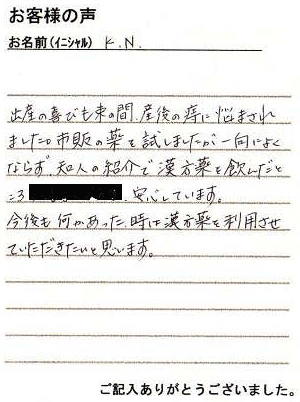 お客様の声
お名前(イニシャル) K.N.
出産の喜びも束の間、産後の痔に悩まされ
ました。市販の薬を試しましたが一向によく
ならず、知人の紹介で漢方薬を飲んだと
ころ 安心しています。
今後も何かあった時は漢方薬を利用させ
ていただきたいと思います。
ご記入ありがとうございました。